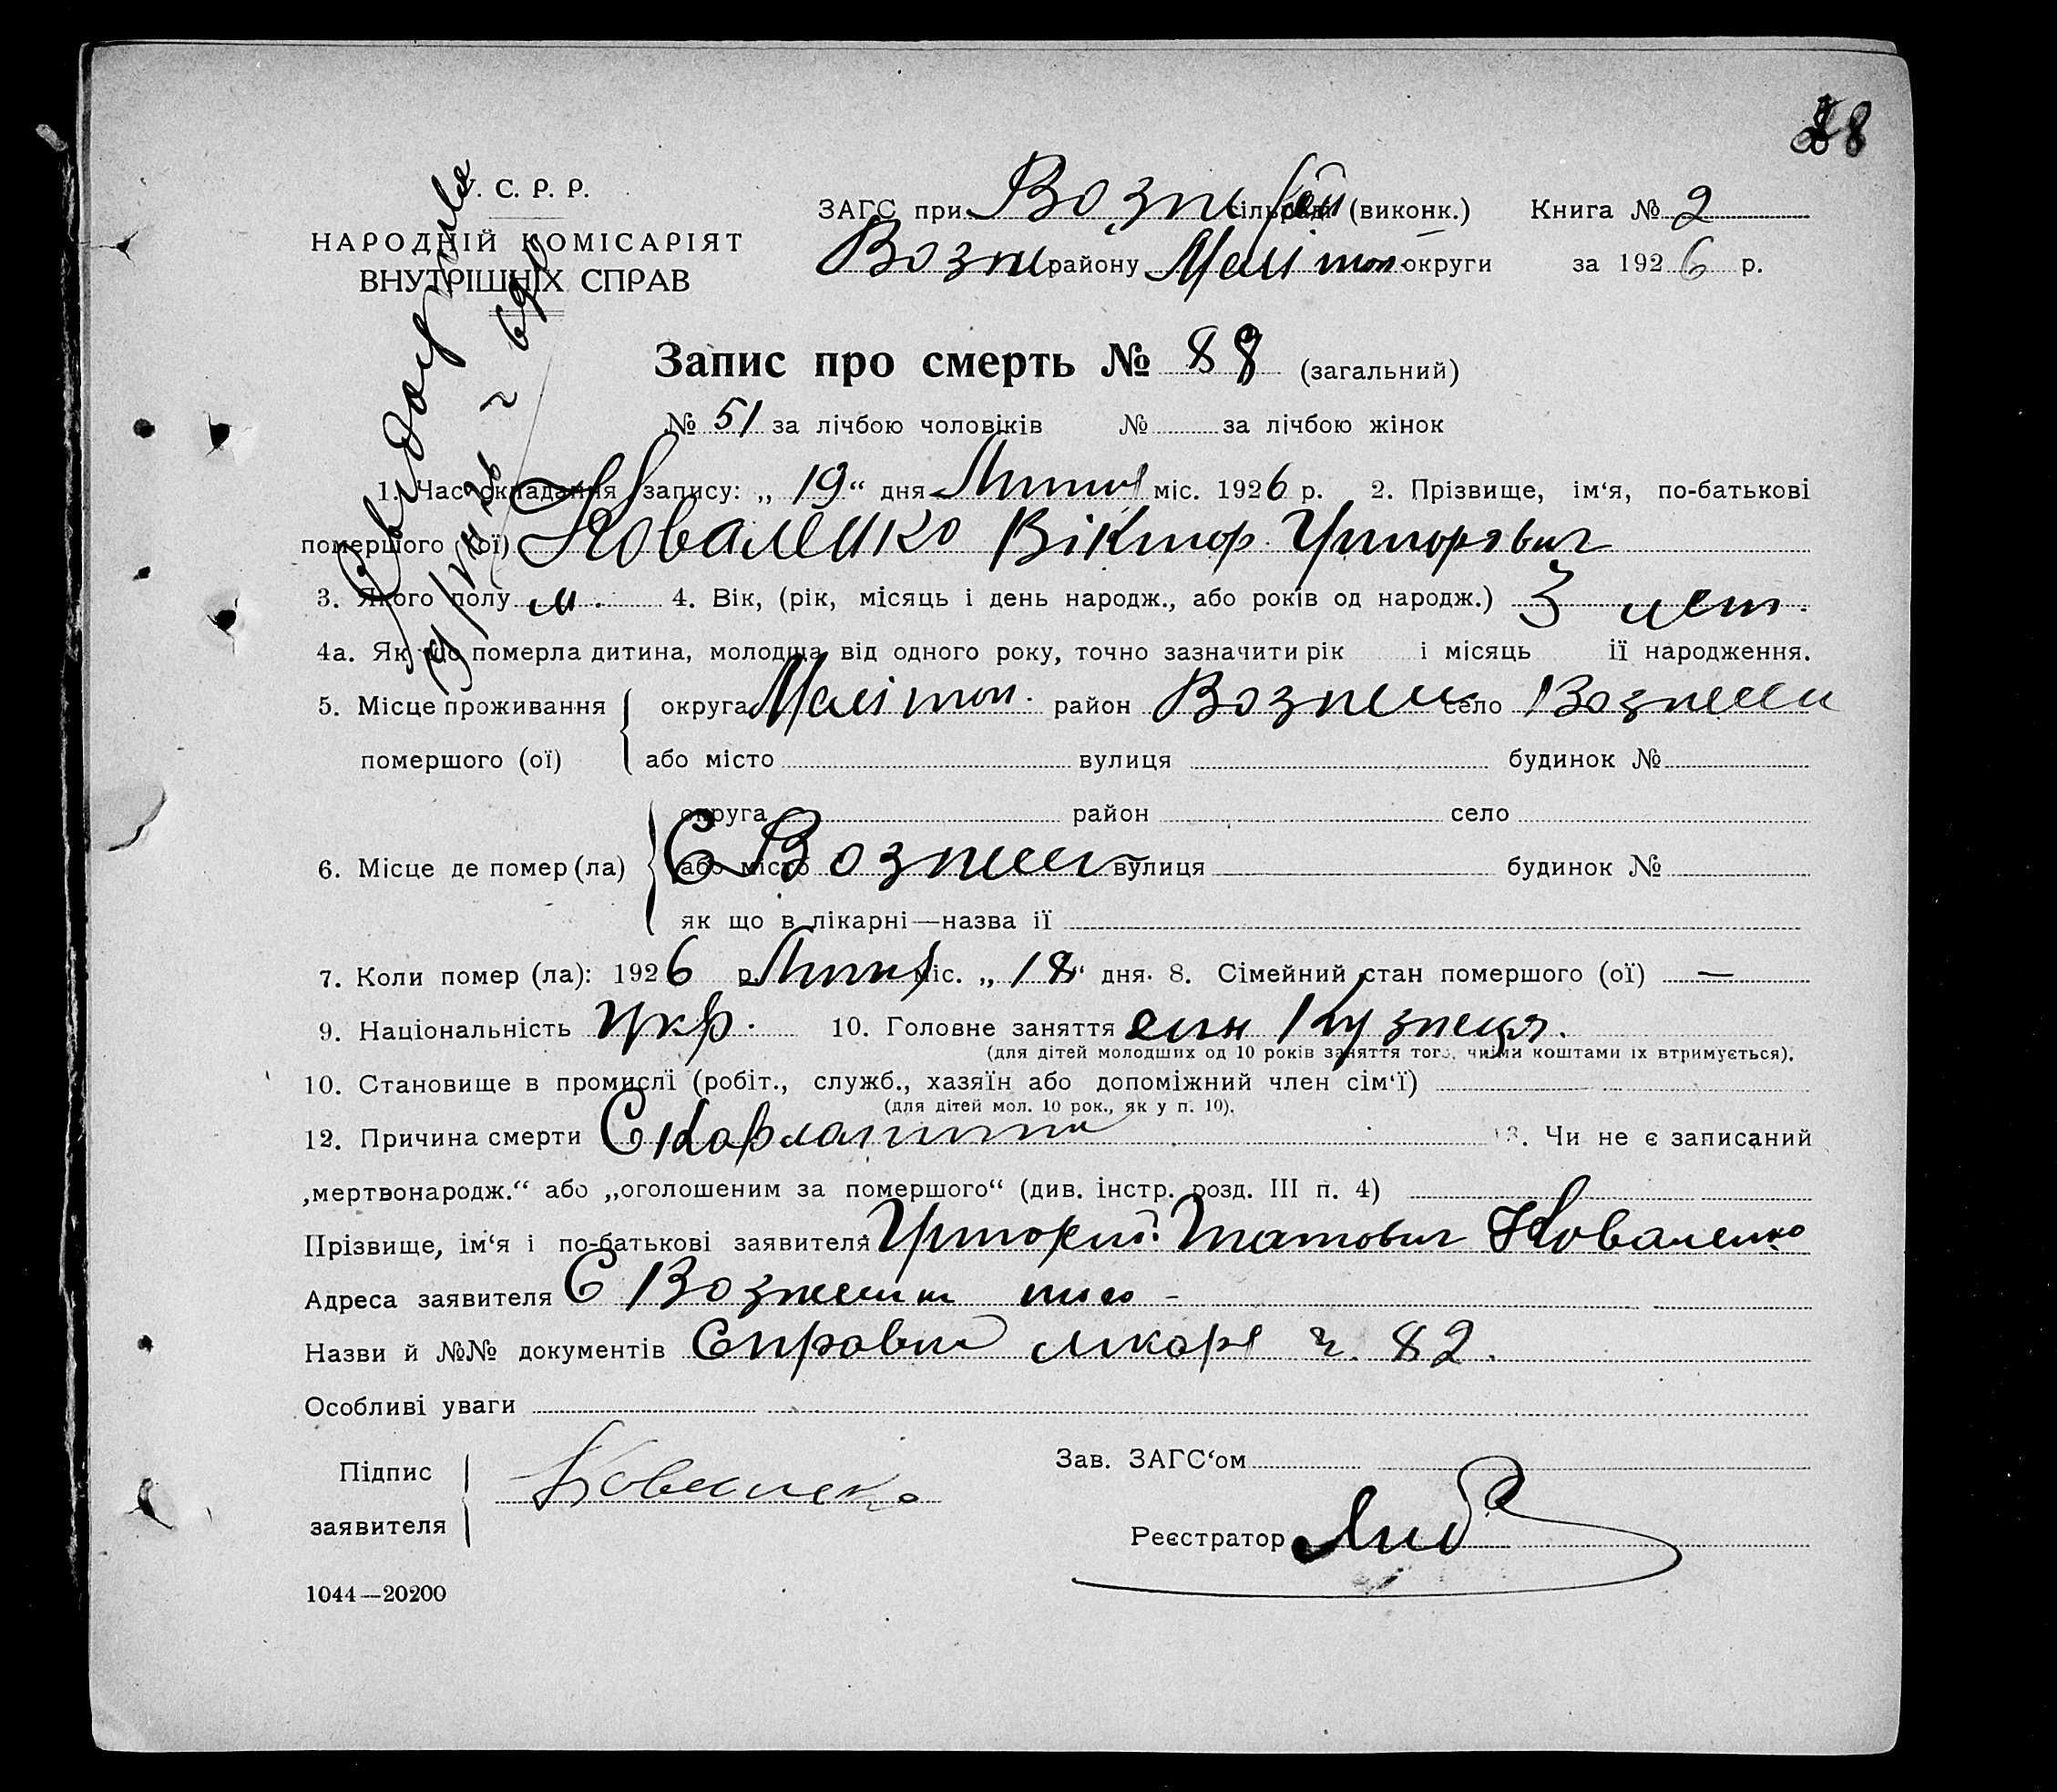 88
У. С. Р. Р.
НАРОДНІЙ КОМІСАРІЯТ
ВНУТРІШНІХ СПРАВ
ЗАГС при Возн сільради (виконк.) Книга № 2
Возн району Мелітоп округи за 1926 р.
Запис про смерть № 88 (загальний)
№ 51 за лічбою чоловіків № за лічбою жінок
1. Час складання запису: „ 19 “ дня Липня міс. 1926 р. 2. Прізвище, ім‘я, по-батькові
помершого (ої) Коваленко Віктор Григорявич
3. Якого полу м. 4. Вік, (рік, місяць і день народж., або років од народж.) 3 лет.
4а. Як що померла дитина, молодша від одного року, точно зазначити рік і місяць її народження.
5. Місце проживання округа Мелітоп. район Вознесен село Вознесен
помершого (ої) або місто вулиця будинок №
округа район село
6. Місце де помер (ла) або місто С Вознесен вулиця будинок №
як що в лікарні—назва її
7. Коли помер (ла): 1926 р. Липня міс. „ 18 “ дня. 8. Сімейний стан помершого (ої) —
9. Національність Укр. 10. Головне заняття син Кузнеця.
(для дітей молодших од 10 років заняття того, чиїми коштами їх втримується).
10. Становище в промислї (робіт., служб., хазяїн або допоміжний член сім‘ї)
(для дітей мол. 10 рок., як у п. 10).
12. Причина смерти Скарлатина 13. Чи не є записаний
„мертвонародж.“ або „оголошеним за помершого“ (див. інстр. розд. III п. 4)
Прізвище, ім‘я і по-батькові заявителя Григорий Коваленко
Адреса заявителя С Вознесен
Назви й №№ документів Справка лікаря ч. 82.
Особливі уваги
Підпис
заявителя Коваленко
Зав. ЗАГС‘ом
Реєстратор
1044—20200